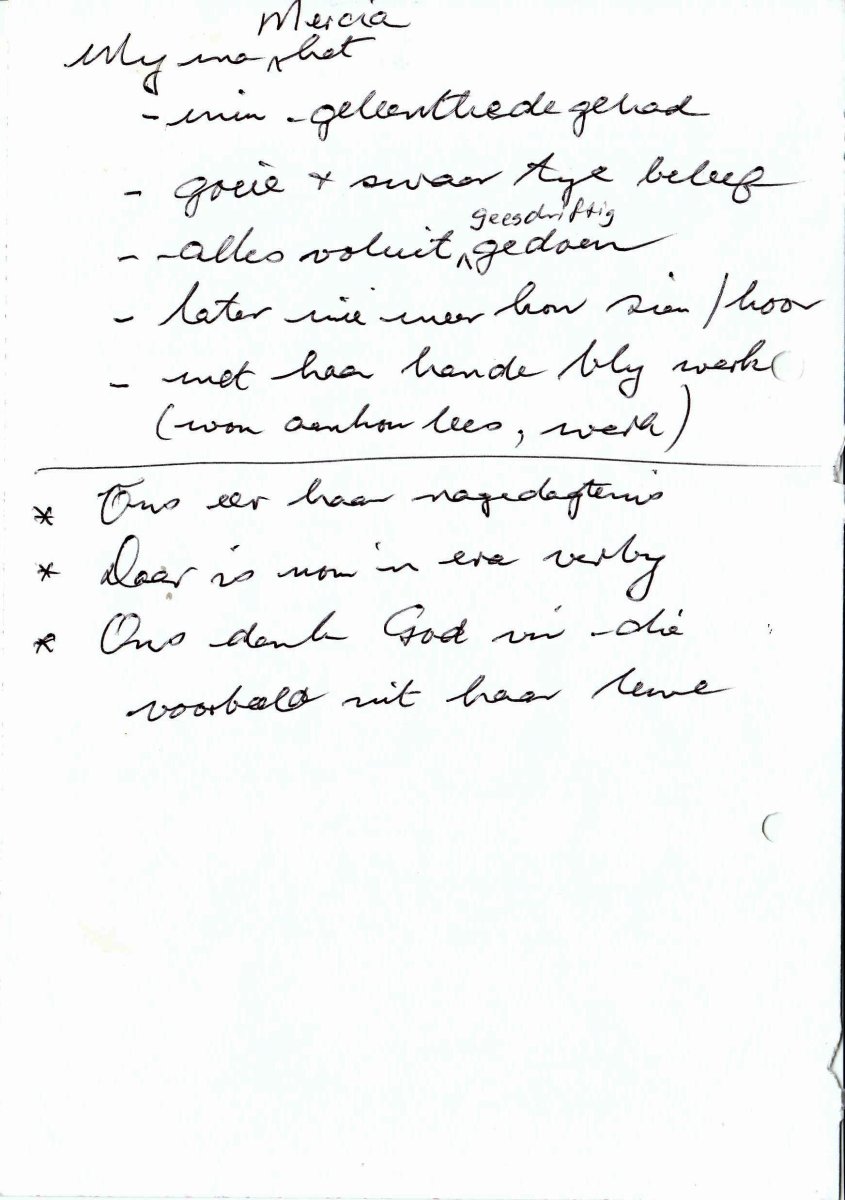 My ma ^Mercia het
- min geleenthede gehad
- goeie + swaar tye beleef
- alles voluit ^geesdriftig gedoen
- later nie meer kon sien / hoor
- met haar hande bly werk
(wou aanhou lees, werk)
* Ons eer haar nagedagtenis
* Daar is nou 'n era verby
* Ons dank God vir die
voorbeeld uit haar lewe